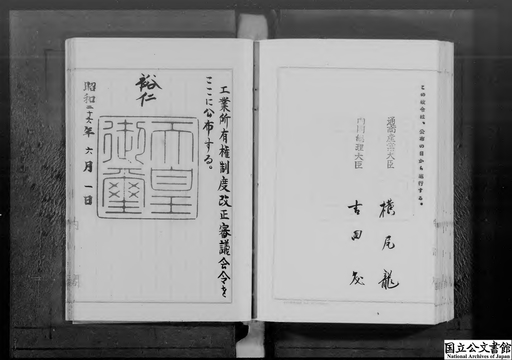 この政令は、公布の日から施行する。
通商産業大臣 横尾龍
内閣総理大臣 吉田茂
工業所有権制度改正審議会令を
ここに公布する。
裕仁
天皇
御璽
昭和二十六年六月一日
国立公文書館
National Archives of Japan